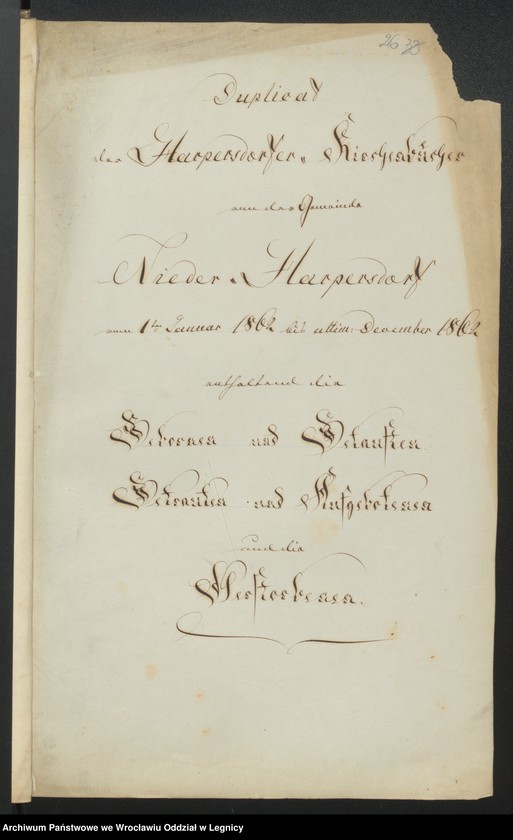 26 32
Duplicat
der Harpersdorfer Kirchenbücher
von der Gemeinde
Nieder-Harpersdorf
vom 1ten Januar 1862 bis ultim: December 1862
enthaltend die
Geborenen und Getauften
Getrauten und Aufgebotenen
und die
Verstorbenen.
Archiwum Państwowe we Wrocławiu Oddział w Legnicy